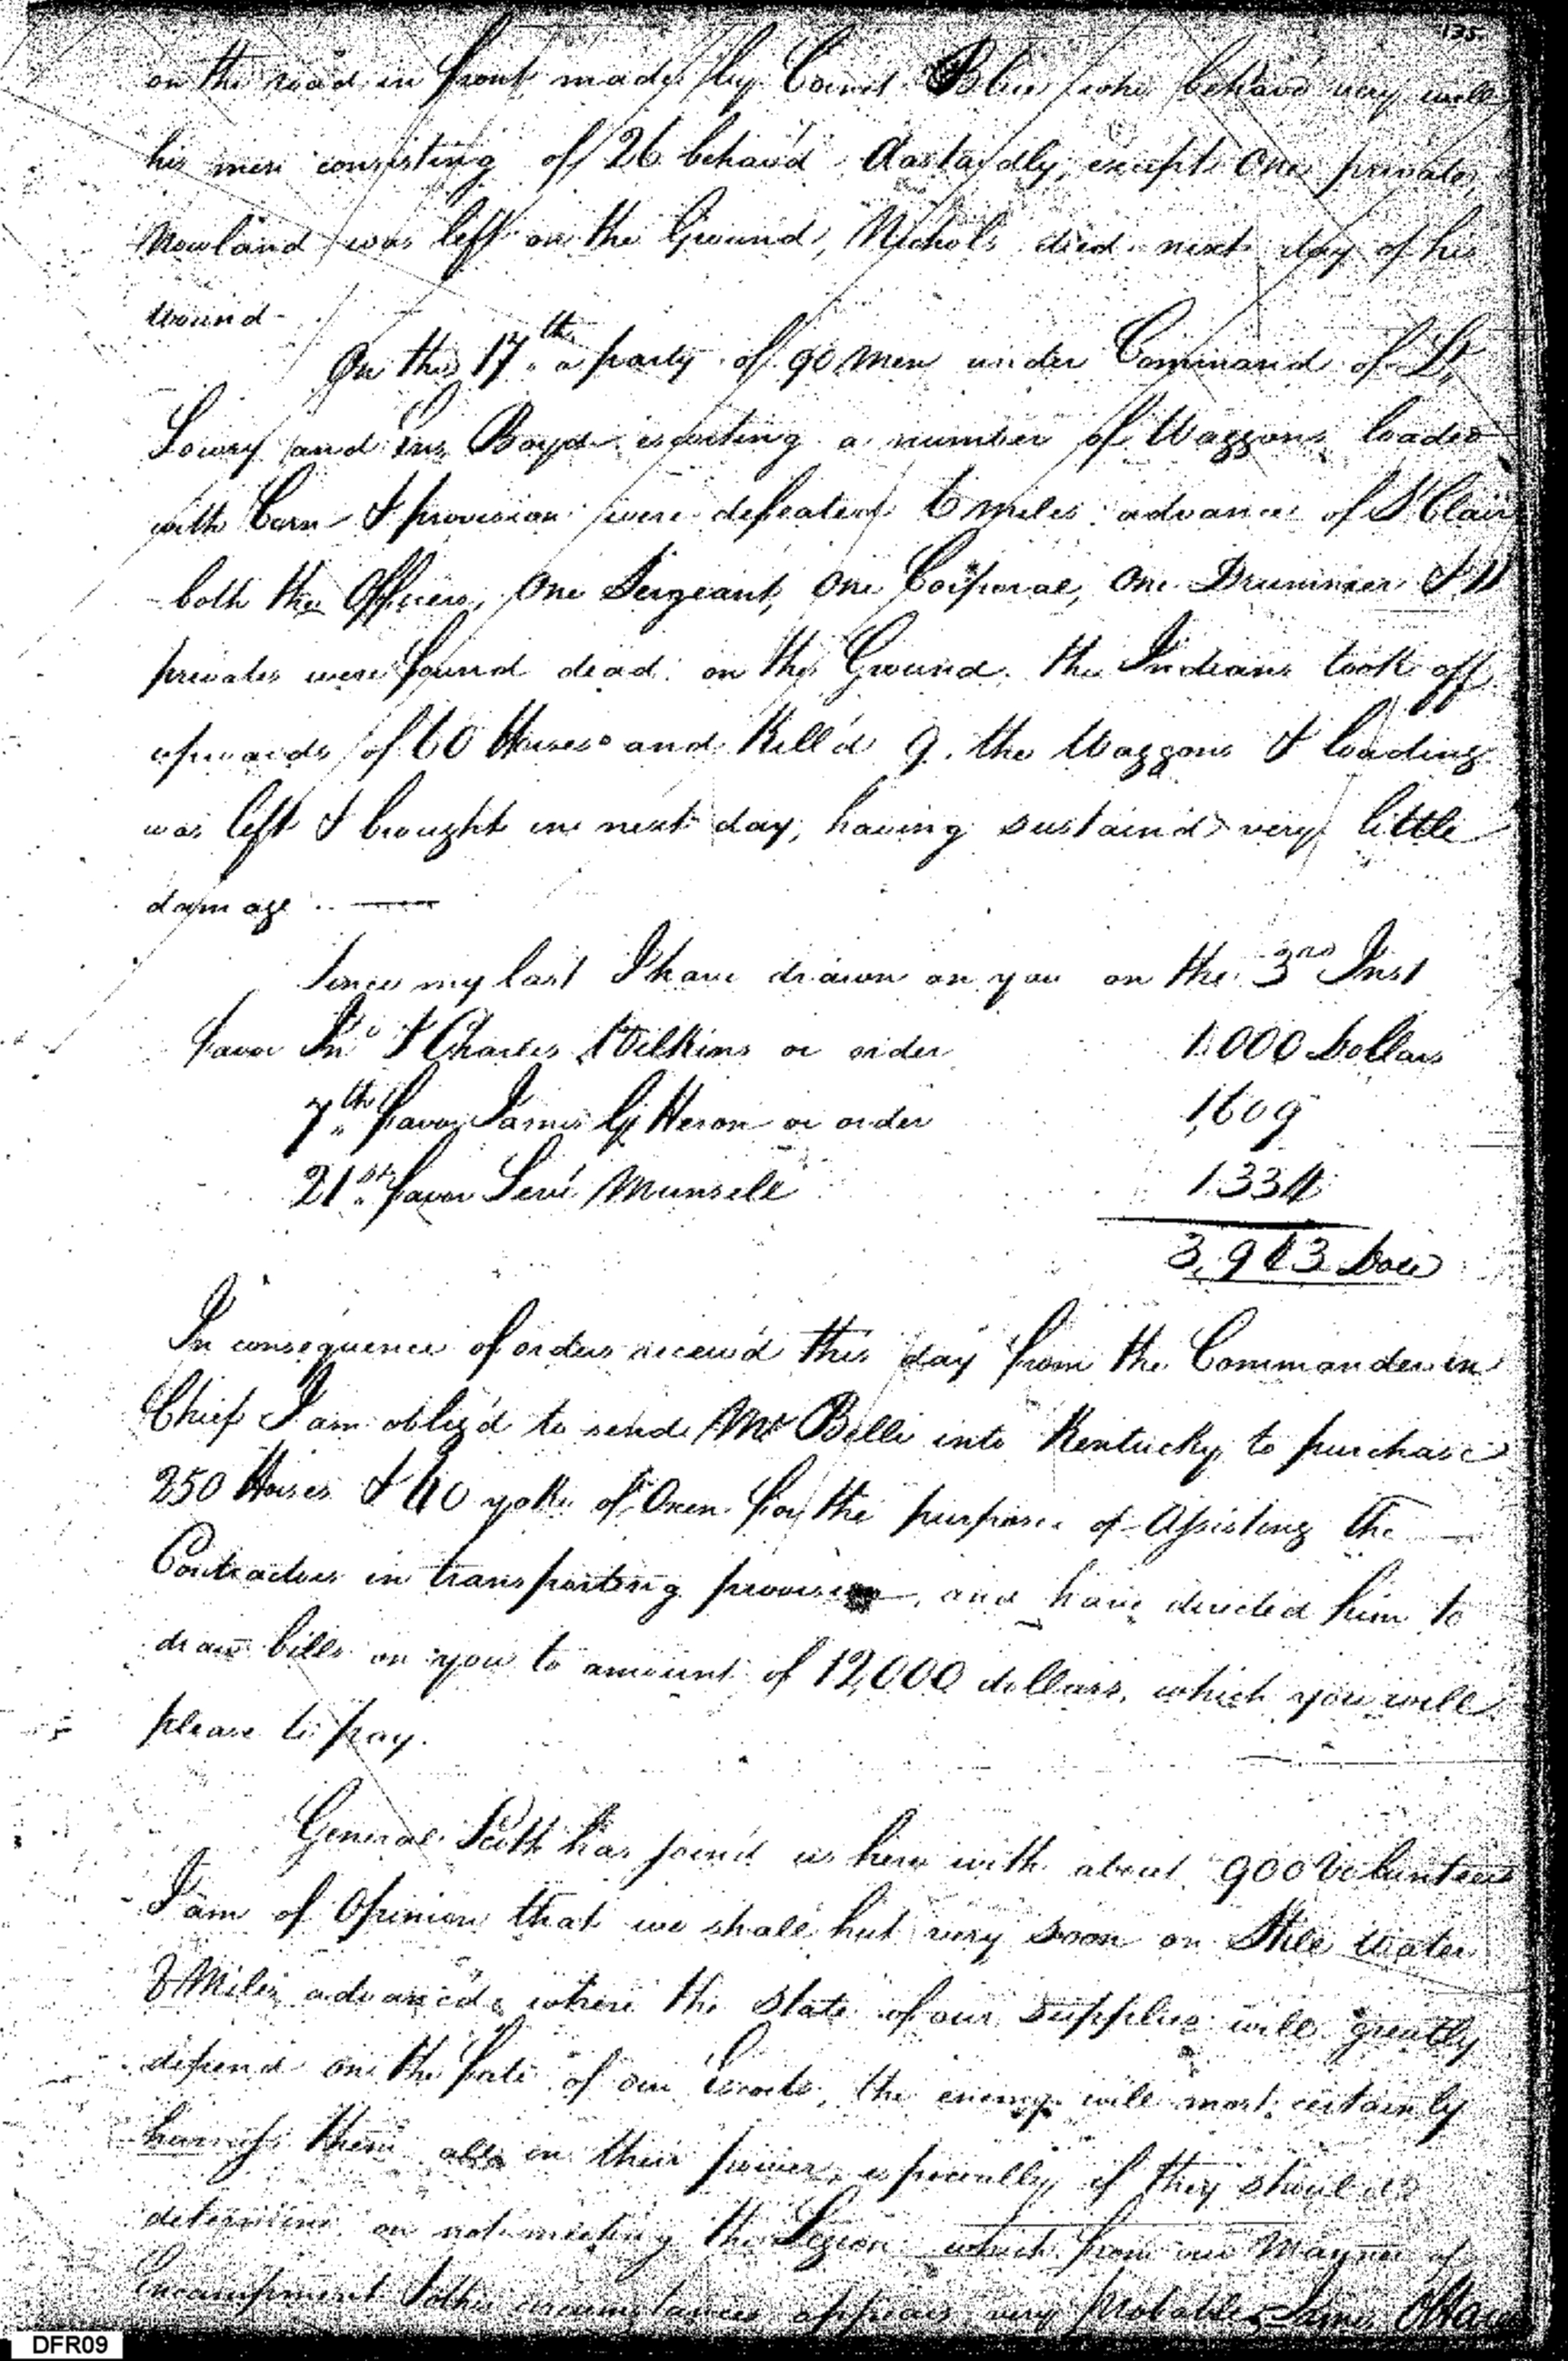 135
on the road in front made by Cornet Blue who behav'd very well
his men consisting of 26 behav'd dastardly, except one private,
Nowland was left on the Ground, Nichols died next day of his
wound-
On the 17th a party of 90 Men under Command of Lt
Lowry and Ens Boyd escorting a number of Waggons loaded
with Corn & provision were defeated 6 miles advance of St Clair
both the Officers, One Sergeant, One Corporal, One Drummer &
privates were found dead on the Ground. the Indians took off
upwards of 60 Horses and Kill'd 9. the Waggons & loading
was left & brought in next day, having sustain'd very little
damage. —
Since my last I have drawn on you on the 3rd Inst
favor Jno & Charles Wilkins or order 1.000 Dollars
7th favor James G Heron or order 1,609
21st favor Levi Munsell 1.334
3,943 Doll
In consequence of orders receiv'd this day from the Commander in
Chief I am oblig'd to send Mr Belli into Kentucky to purchase
250 Horses & 40 yoke of Oxen for the purpose of Assisting the —
Contractors in transporting provision, and have directed him to
draw bills on you to amount of 12,000 dollars, which you will
please to pay.
General Scott has join'd us here with about 900 Volunteers
I am of Opinion that we shall hut very soon on Still Water
8 Miles advanced, where the state of our supplies will greatly
depend on the fate of our Escorts, the enemy will most certainly
harrass them all in their power, especially if they should
determine on not meeting the Legion which from our Manner of
Encampment & other circumstances appears very probable, James OHara
DFR09